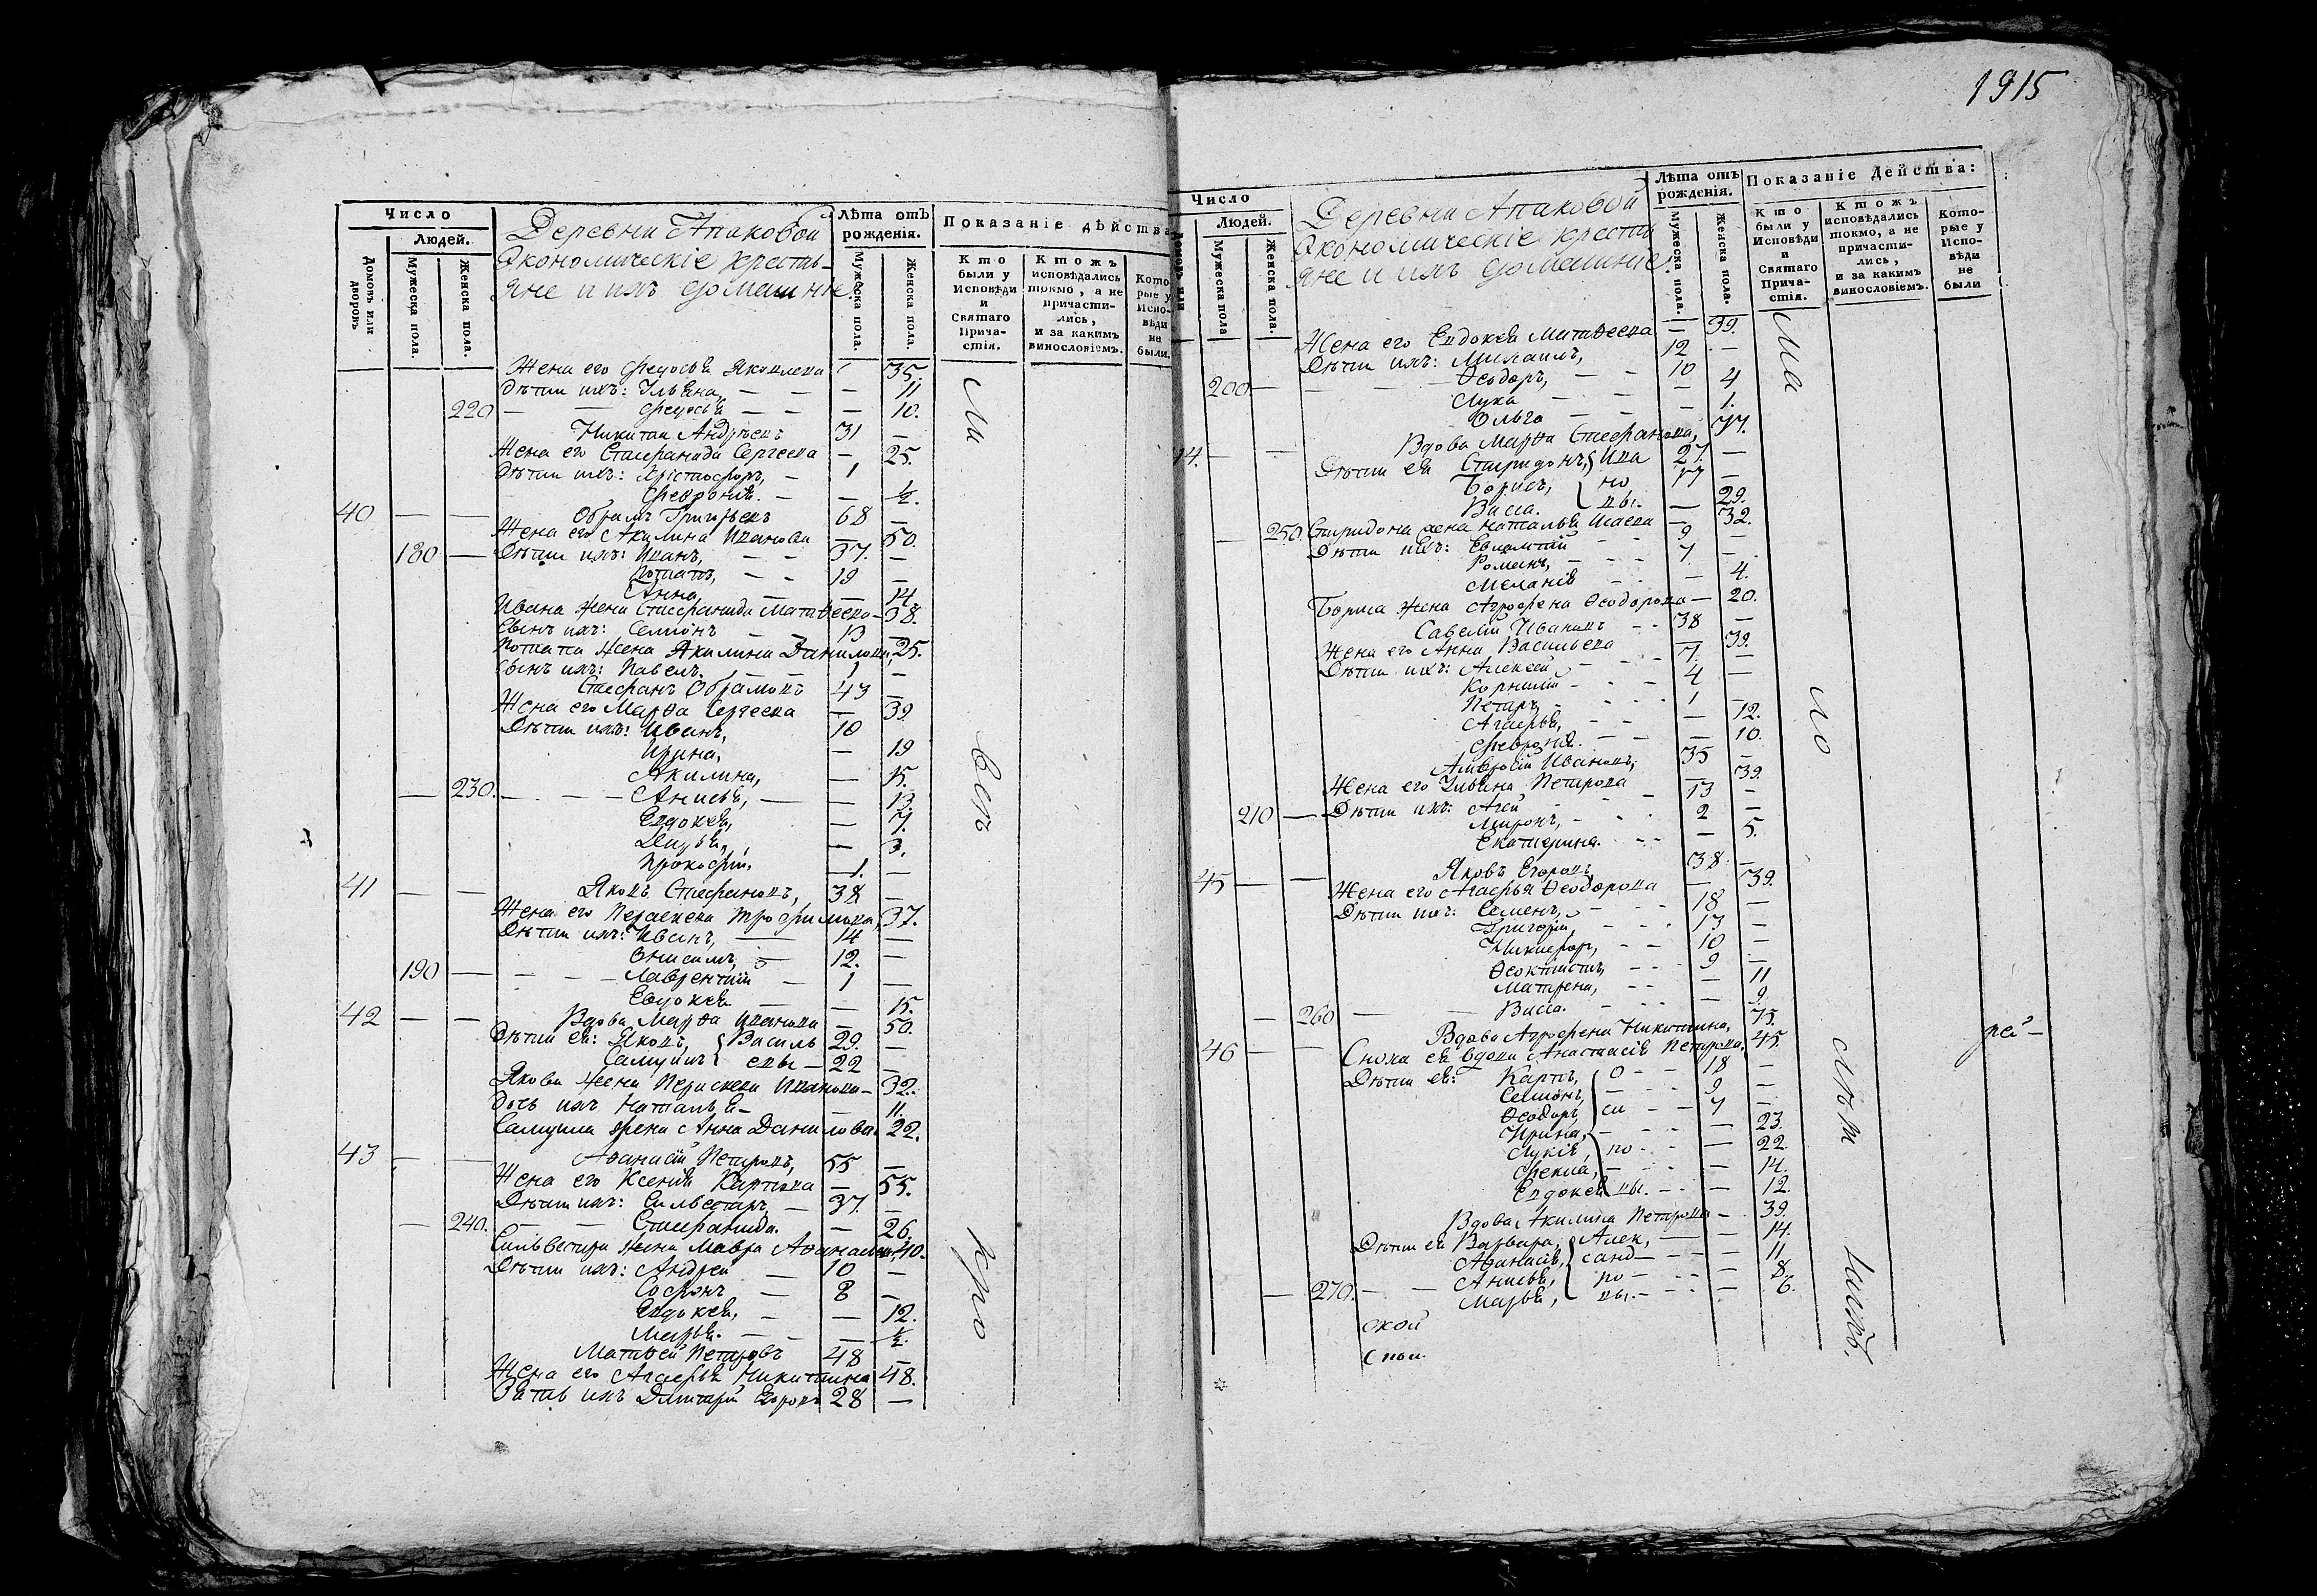 1915
Число
Людей.
Домовъ или дворовъ
Мужеска пола.
Женска пола.
Деревни Апаковой
Экономическіе крестья-
яне и ихъ домашніе.
Лѣта отъ рожденія.
Мужеска пола.
Женска пола.
Показаніе дѣйства
Кто были у Исповѣди и Святаго Прича-стія.
Ктожъ исповѣдались токмо, а не причасти-лись, и за какимъ винословіемъ.
Кото-рые у Испо-вѣди не были.
Жена его Федосья Яковлева 35.
Дѣти ихъ: Ульяна, — — — 11
220 — — Федосья — — — 10.
Никита Андреевъ 31 —
Жена его Стефанида Сергеева — 25.
Дѣти ихъ: Христофоръ, — 1
Февронія. — — ½.
40 — — Обрамъ Григорьевъ 68 —
Жена его Акилина Иванова — 50.
180 — Дѣти ихъ: Иванъ, — — 37. —
Потапъ, — — 19 —
Анна, — — 14
Ивана жена Стефанида Матвеева — 38.
Сынъ ихъ: Семіонъ — 13 —
Потапа жена Акилина Данилова, 25.
Сынъ ихъ: Павелъ. — — 1 —
Стефанъ Обрамовъ 43 —
Жена его Марѳа Сергеева — 39.
Дѣти ихъ: Иванъ, 10
Ирина, — 19
Акилина, — 15.
— 230. — — — Анисья, — — 13.
Евдокея, — 7.
Дарья, — 3.
Прокофій. 1. —
41 — — Яковъ Стефановъ, 38 —
Жена его Параскева Трофимова, 37.
Дѣти ихъ: Иванъ, — 14 —
Онисимъ, — 12. —
190 — — — — Лаврентій — 1 —
Евдокея — — 15.
42 — — Вдова Марѳа Иванова — 50.
Дѣти ея: Яковъ, { Василь 29. —
Самуилъ } евы — 22 —
Якова жена Параскева Иванова — 32.
Дочь ихъ Наталья — — 11.
Самуила жена Анна Данилова. 22.
43 — — Аѳанасій Петровъ, 55 —
Жена его Ксенія Карпова — 55.
Дѣти ихъ: Сильвестръ, — 37. —
— 240. — — Стефанида. — 26.
Сильвестра жена Мавра Аѳанасьева, 40.
Дѣти ихъ: Андрей — 10 —
Софронъ — 8 —
Евдокея, — — 12.
Марья. — — — ½.
Матвей Петровъ 48 —
Жена его Агафья Никитина 48.
Зять ихъ Дмитрій Егоровъ 28 —
Ми
весь
про
Число
Людей.
Домовъ или
Мужеска пола
Женска пола.
Деревни Апаковой
Экономическіе кресть
яне и ихъ домашніе.
Лѣта отъ рожденія.
Мужеска пола.
Женска пола.
Показаніе Действа:
Кто были у Исповѣди и Святаго Прича-стія.
Ктожъ исповѣдались токмо, а не причасти-лись, и за какимъ винословіемъ.
Кото-рые у Испо-вѣди не были
Жена его Евдокея Матвеева — 39.
Дѣти ихъ: Михаилъ, 12 —
200. — — — — Ѳеодоръ, — — 10
Лука — — — 4
Ольга — — — 1.
14. — — Вдова Марѳа Стефанова, 77.
Дѣти ея Спиридонъ, { Ива 27. —
Борисъ, { но 17 —
Васса. { вы. — 29.
— 250. Спиридона жена Наталья Исаева — 32.
Дѣти ихъ: Евлампій — — 9 —
Романъ, — — — 7. —
Меланія — — — 4.
Бориса жена Агрофена Ѳеодорова — 20.
Савелій Ивановъ — — 38 —
Жена его Анна Васильева — 39.
Дѣти ихъ: Алексей — — — 7. —
Корнилій — — — 4 —
Петръ, — — — 1 —
Агафья, — — — 12.
Февронія. — — — 10.
Амвросій Ивановъ, 35 —
Жена его Ульяна Петрова — 39.
210 — Дѣти ихъ: Агей — — 13 —
Миронъ, — — — 2 —
Екатерина. — — — 5.
45 — — Яковъ Егоровъ 38 —
Жена его Агафья Ѳеодорова — 39.
Дѣти ихъ: Семенъ, — — — 18 —
Григорій, — — — 13 —
Никифоръ, — — 10 —
Ѳеоктистъ, — — 9 —
Матрена, — — — 11
— 260 — — Васса. — — — 9.
46 — — Вдова Агрофена Никитина, 75.
Сноха ея вдова Анастасія Петрова, 45.
Дѣти ея: Карпъ, { О — — 18 —
Семіонъ, — — — 9 —
Ѳеодоръ, { си — — 7 —
Ирина, — — — 23.
Лукія, { по — — — 22
Фекла, — — — 14.
Евдокея { вы. — — — 12.
Вдова Акилина Петрова — 39.
Дѣти ея Варвара, { Алек, — — 14.
Аѳанасія, { санд — — — 11
— 270. — — Анисья, { ро — — — 8.
Марья, { вы. — — — 6.
ской
Ми
ло
рей —